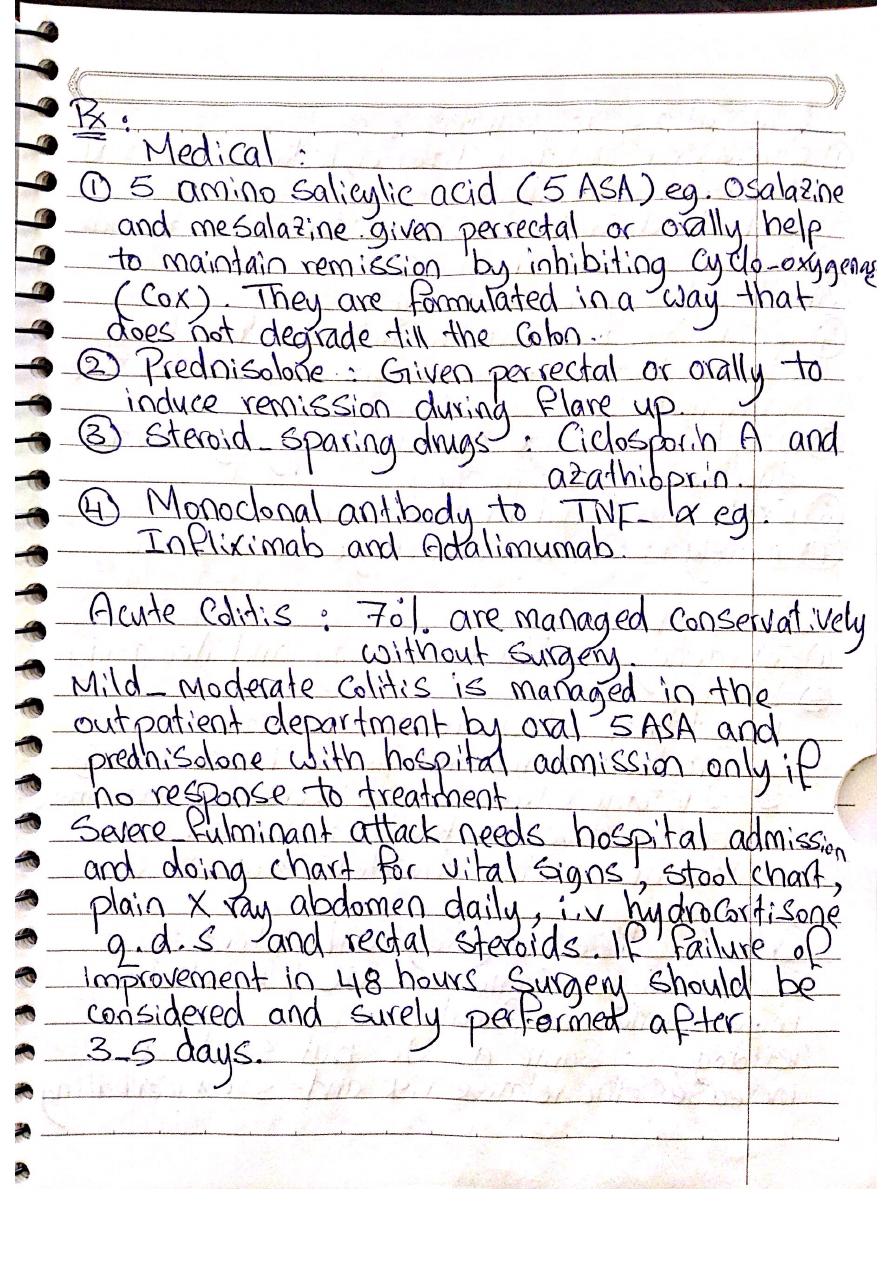 Rx :
Medical :
① 5 amino salicylic acid (5 ASA) eg. Osalazine
and mesalazine given perrectal or orally help
to maintain remission by inhibiting Cyclo-oxygenas
(Cox). They are formulated in a way that
does not degrade till the Colon.
② Prednisolone : Given perrectal or orally to
induce remission during flare up.
③ Steroid-sparing drugs : Ciclosporin A and
azathioprin.
④ Monoclonal antibody to TNF-α eg.
Infliximab and Adalimumab.
Acute Colitis : 70%. are managed conservatively
without surgery.
Mild-moderate colitis is managed in the
outpatient department by oral 5 ASA and
prednisolone with hospital admission only if
no response to treatment.
Severe-fulminant attack needs hospital admission
and doing chart for vital signs, stool chart,
plain X ray abdomen daily, i.v hydrocortisone
q.d.s and rectal steroids. If failure of
improvement in 48 hours surgery should be
considered and surely performed after
3-5 days.